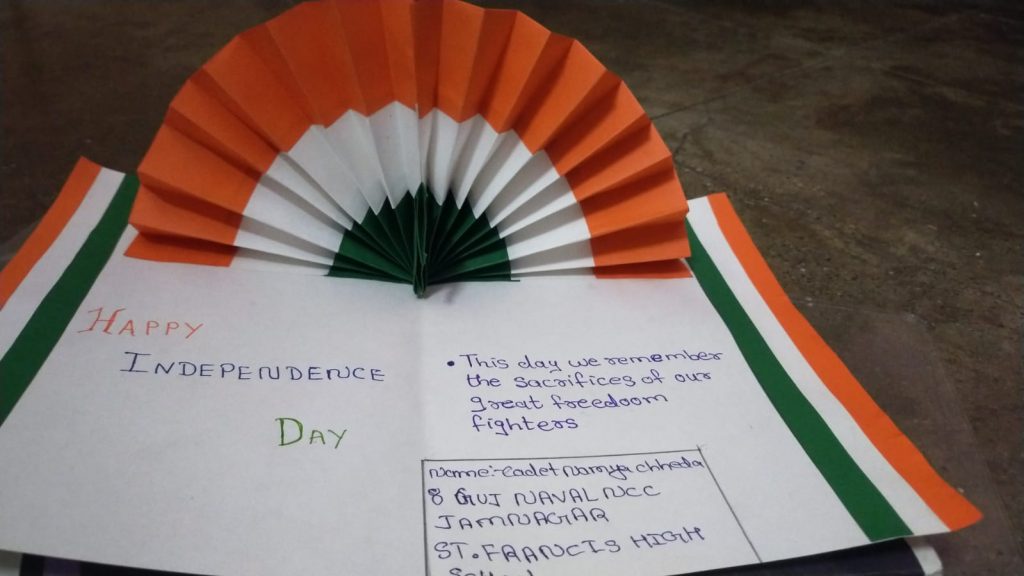 HAPPY
INDEPENDENCE
DAY
• This day we remember
the sacrifices of our
great freedoom
fighters
Name:- Cadet Namya chheda
8 GUJ NAVAL NCC
JAMNAGAR
ST. FRANCIS HIGH
School